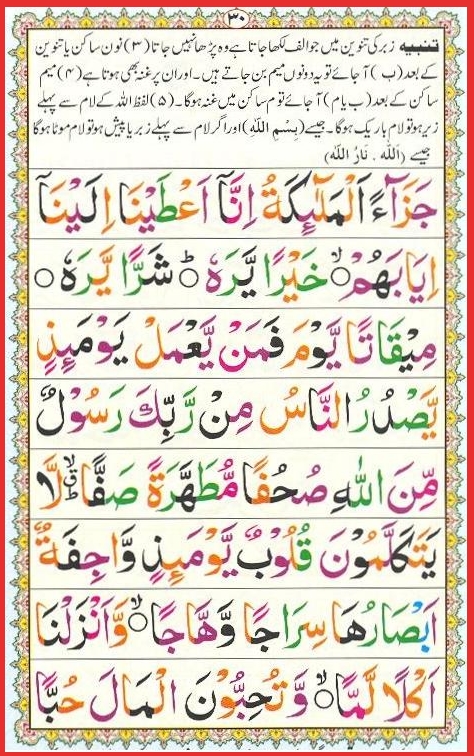 ۳۰
تنبیہ زبر کی تنوین میں جو الف لکھا جاتا ہے وہ پڑھا نہیں جاتا (۳) نون ساکن یا تنوین
کے بعد (ب) آ جائے تو یہ دونوں میم بن جاتے ہیں۔ اور ان پر غنہ بھی ہوتا ہے (۴) میم
ساکن کے بعد (ب یا م) آ جائے تو م ساکن میں غنہ ہوگا۔ (۵) لفظ اللہ کے لام سے پہلے
زیر ہو تو لام باریک ہوگا۔ جیسے (بِسْمِ اللّٰهِ) اور اگر لام سے پہلے زبر یا پیش ہو تو لام موٹا ہوگا
جیسے (اَللّٰهُ . نَارُ اللّٰهِ)
جَزَآءً اَلْمَلٰٓئِكَةُ اِنَّآ اَعْطَيْنَا اِلَيْنَآ
اِيَابَهُمْ ۙ خَيْرًا يَّرَهٗ ۟ؕ شَرًّا يَّرَهٗ ۟
مِيْقَاتًا يَّوْمَ فَمَنْ يَّعْمَلْ يَوْمَئِذٍ
يَّصْدُرُ النَّاسُ مِنْ رَّبِّكَ رَسُوْلٌ
مِّنَ اللّٰهِ صُحُفًا مُّطَهَّرَةً صَفًّا ۙۗؕ لَّا
يَتَكَلَّمُوْنَ قُلُوْبٌ يَّوْمَئِذٍ وَّاجِفَةٌ
اَبْصَارُهَا سِرَاجًا وَّهَّاجًا ۙ وَّاَنْزَلْنَا
اَكْلًا لَّمًّا ۙ وَّتُحِبُّوْنَ الْمَالَ حُبًّا